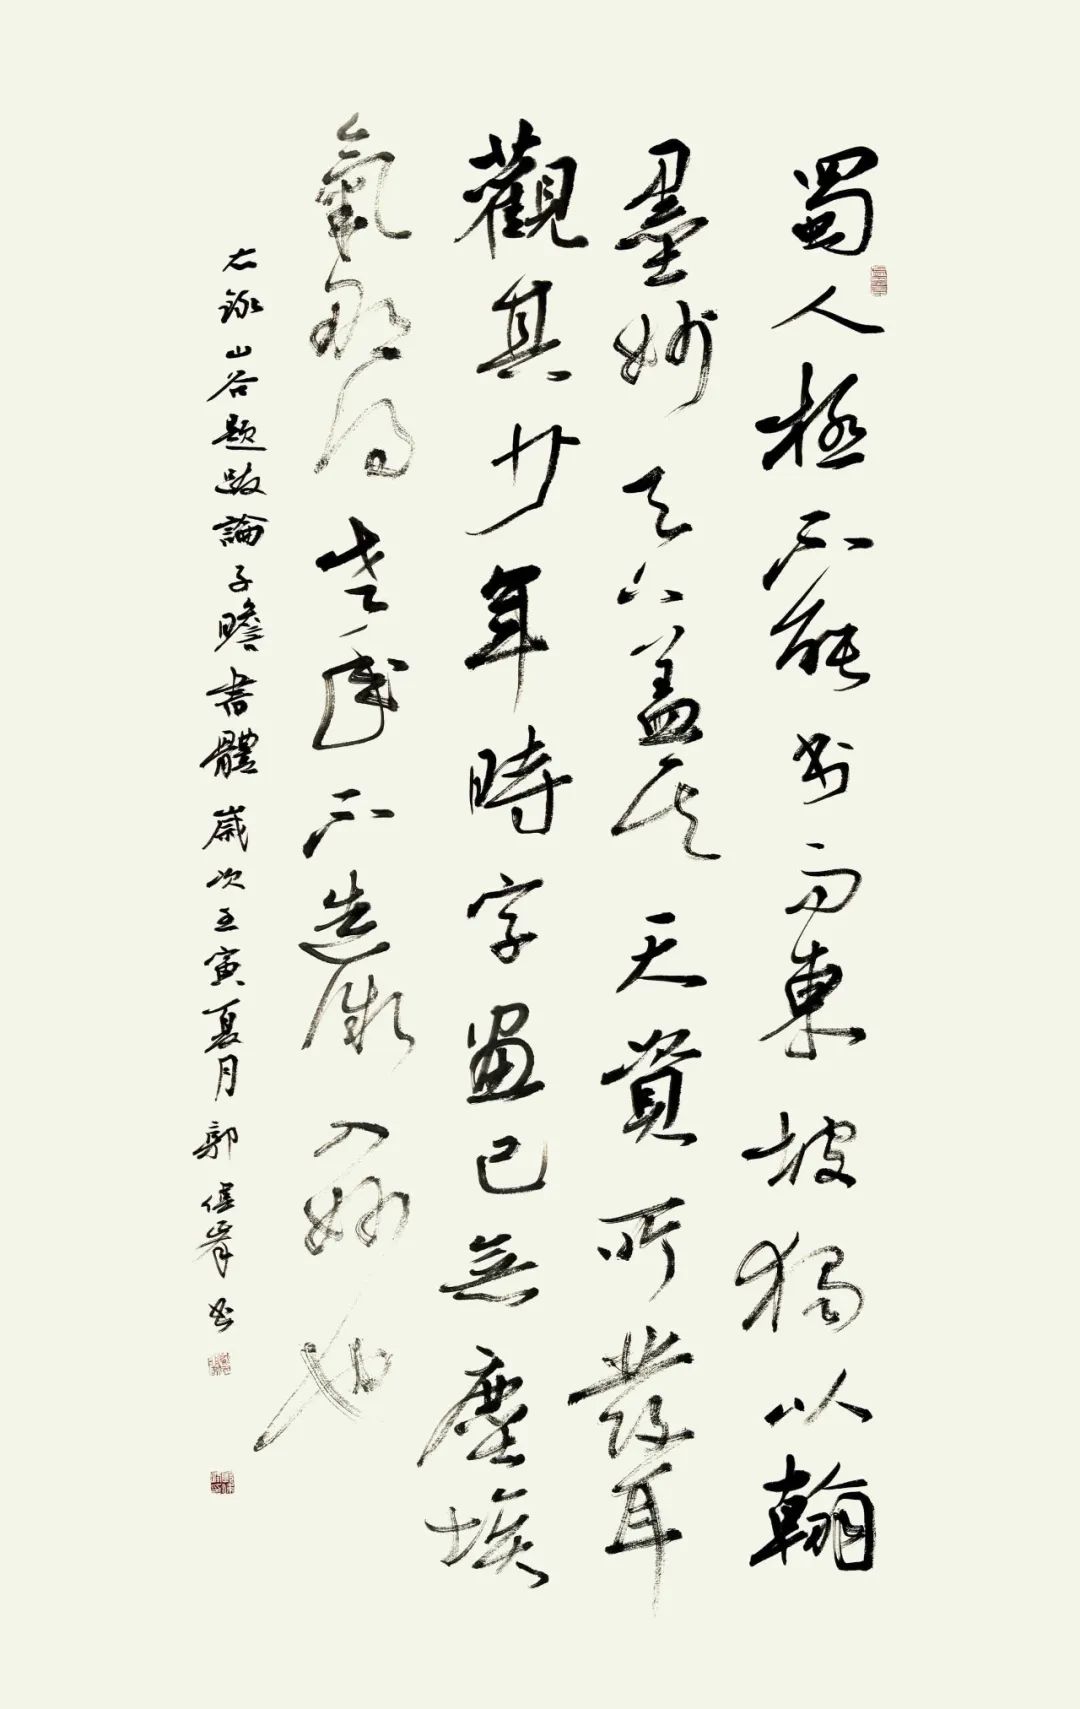 蜀人極不能書而東坡獨以翰
墨妙天下蓋其天資所發耳
觀其少年時字畫已無塵埃
氣那得老年不造微入妙也
右錄山谷題跋論子瞻書體歲次壬寅夏月郭峯書